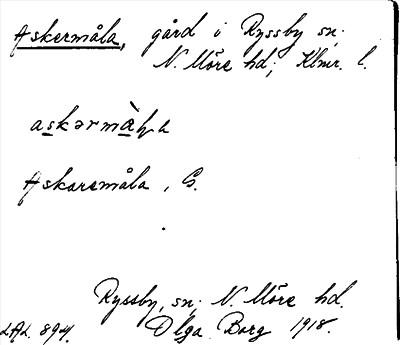 Askermåla, gård i Ryssby sn.
N. Möre hd; Klmr. l.
Askaremåla, G.
Ryssby, sn; N. Möre hd.
Olga Borg 1918.